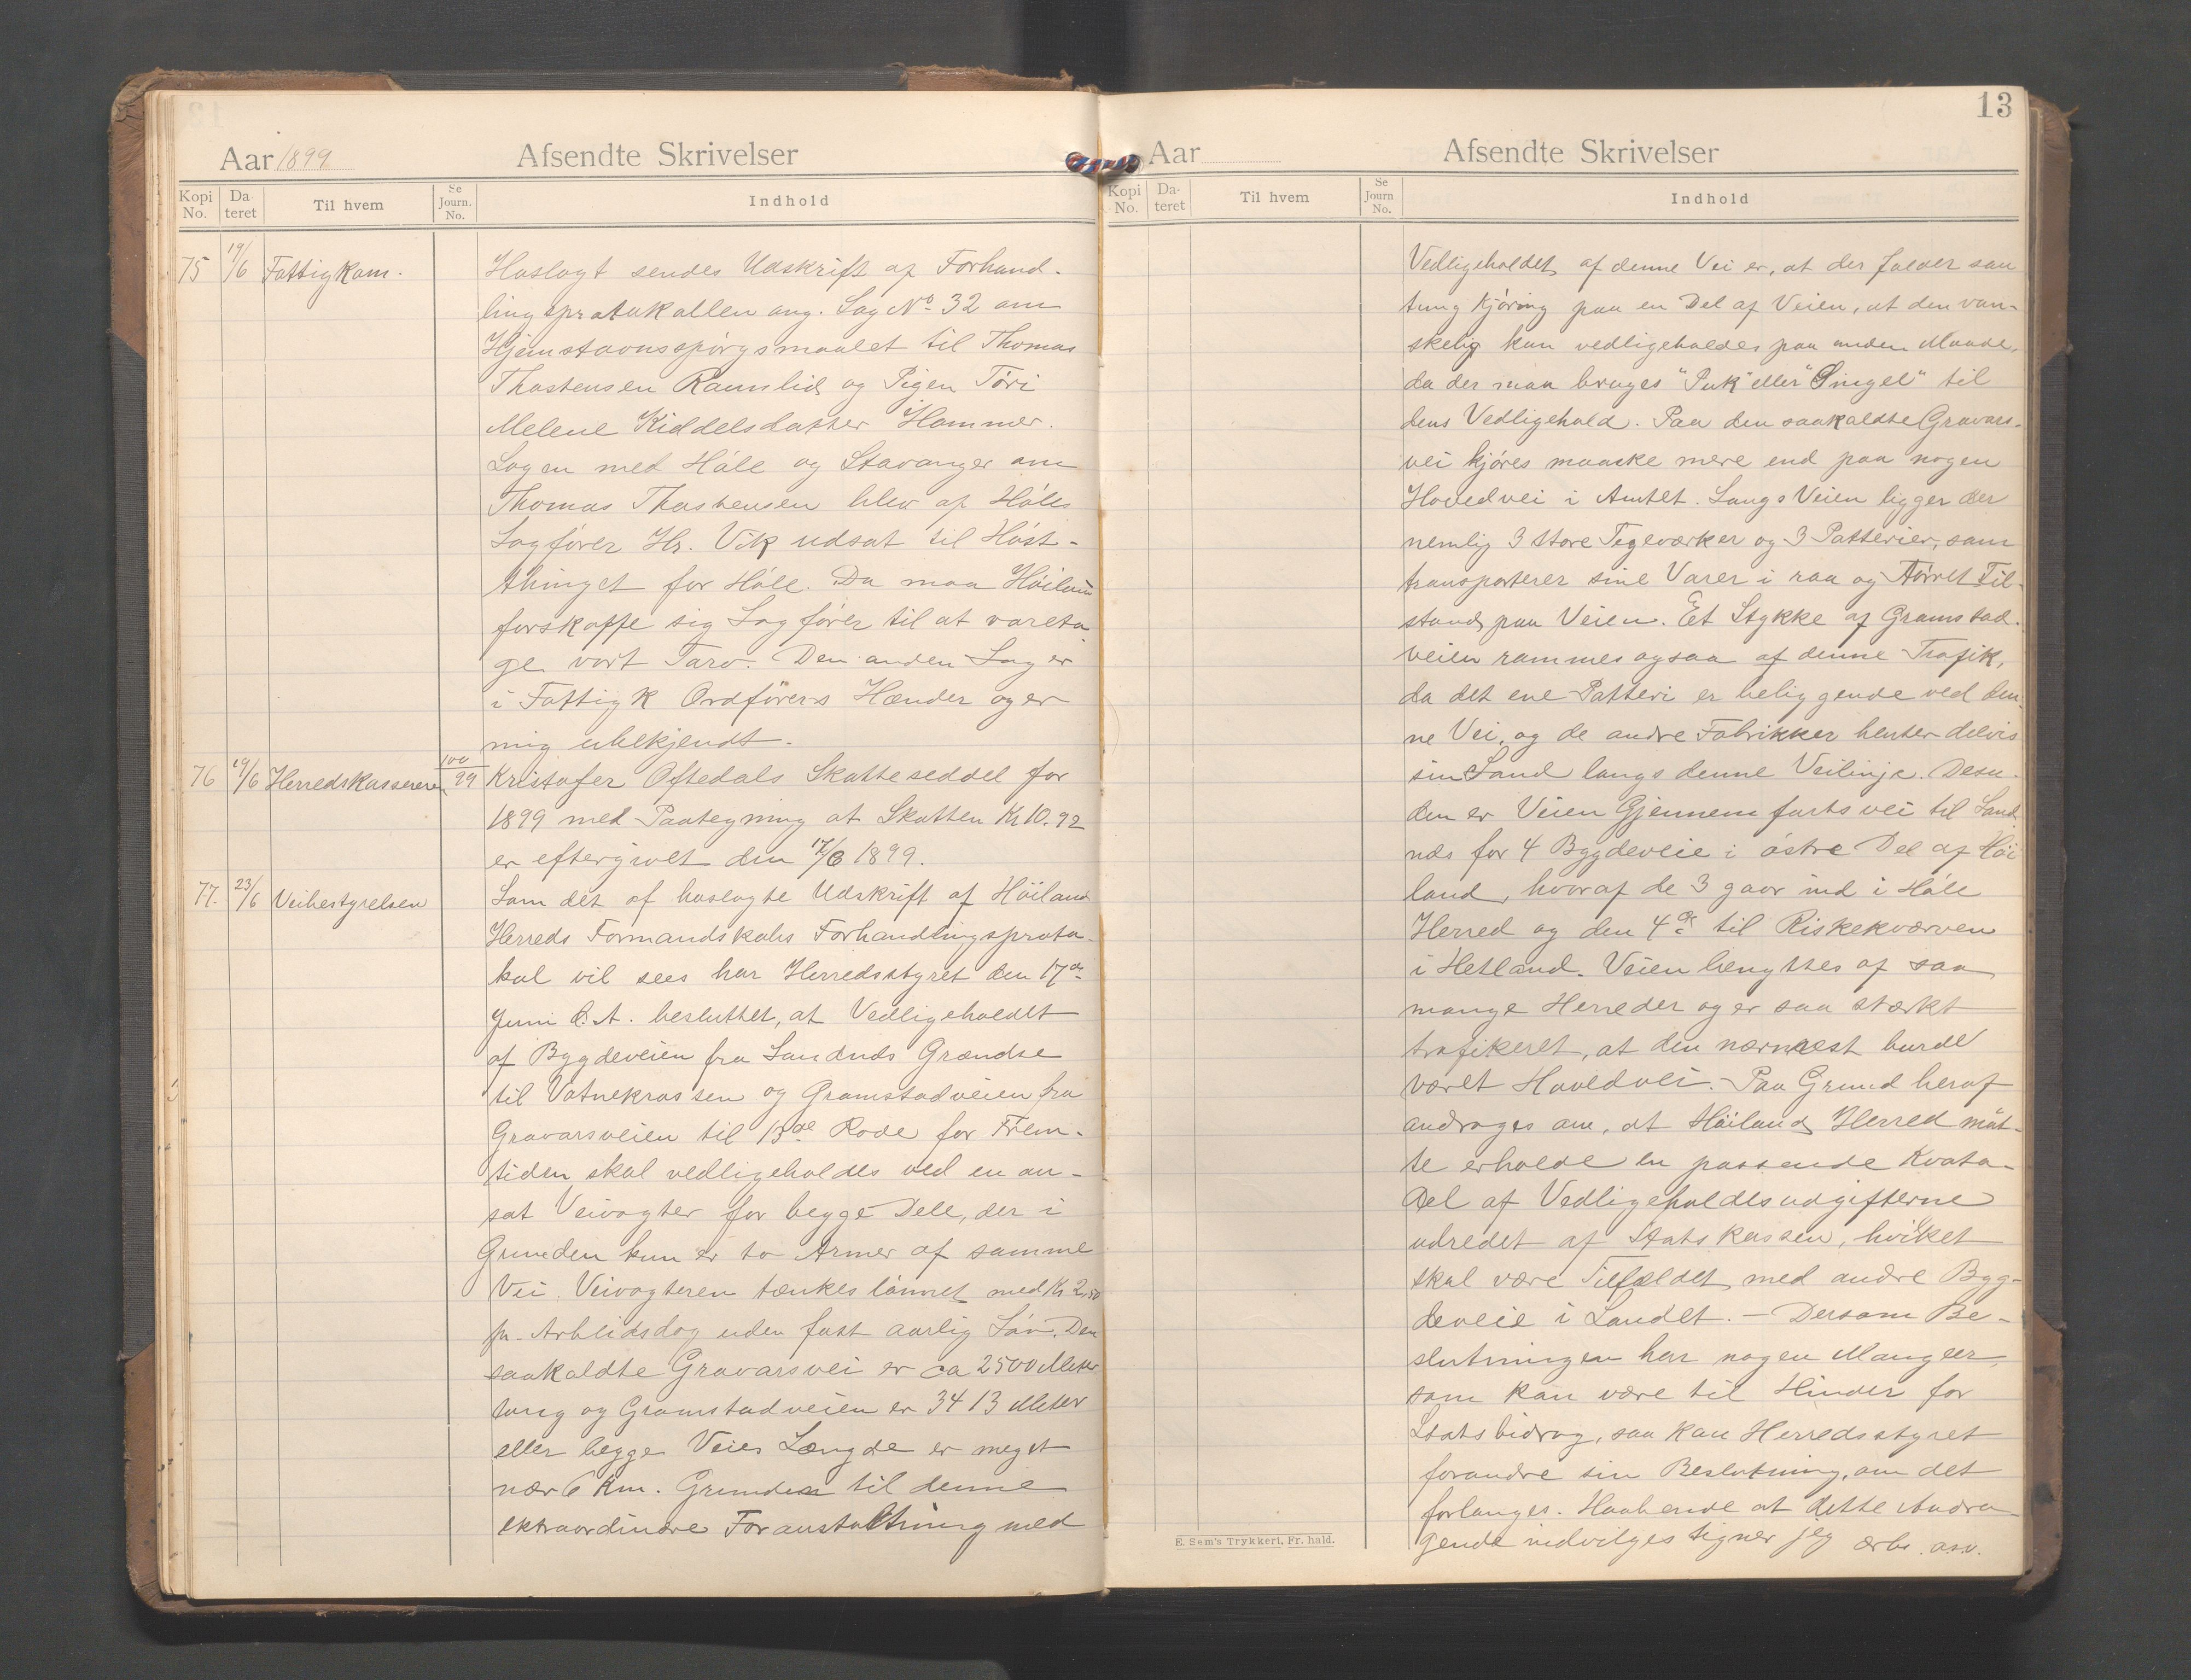 Aar 1899 Afsendte Skrivelser
Kopi No. Da teret Til hvem Se Journ. No. Indhold
75 19/6 Fattigkom. Hoslagt sendes Udskrift af Forhand-
lingsprotokollen ang. Sag No 32 om
Hjemstavnsspørgsmaalet til Thomas
Thostensen Ramslid og Pigen Töri
Melene Kiddelsdatter Hommer.
Sagen med Höle og Stavanger om
Thomas Thostensen blev af Höles
Sagfører Hr. Vik udsat til Höst-
thinget for Höle. Da maa Höiland
forskaffe sig Sagfører til at vareta
ge vort Tarv. Den anden Sag er
i Fattigk Ordførers Hænder og er
mig ubekjendt.
76 19/6 Herredskassereren 100/99 Kristofer Oftedals Skatteseddel for
1899 med Paategning at Skatten Kr 10.92
er eftergivet den 17/6 1899.
77. 23/6 Veibestyrelsen Som det af hoslagte Udskrift af Höiland
Herreds Formandskabs Forhandlingsproto-
kol vil sees har Herredsstyret den 17de
Juni d. A. besluttet, at Vedligeholdet
af Bygdeveien fra Sandnds Grændse
til Vatnekrossen og Gramstadveien fra
Gravarsveien til 13de Rode for Frem-
tiden skal vedligeholdes ved en an-
sat Veivogter for begge Dele, der i
Grunden kun er to Armer af samme
Vei. Veivogteren tænkes lönnet med Kr 2,50
pr. Arbeidsdag uden fast aarlig Lön. Den
saakaldte Gravarsvei er ca 2500 Meter
lang og Gramstadveien er 3413 Meter
eller begge Veies Længde er meget
nær 6 Km. Grunden til denne
extraordinære Foranstaltning med
13
Aar Afsendte Skrivelser
Kopi No. Da- teret Til hvem Se Journ No. Indhold
Vedligeholdet af denne Vei er, at der falder saa
tung Kjöring paa en Del af Veien, at den van-
skelig kan vedligeholdes paa anden Maade,
da der maa bruges "Puk" eller "Singel" til
dens Vedligehold. Paa den saakaldte Gravars-
vei kjöres maaske mere end paa nogen
Hovedvei i Amtet. Langs Veien ligger der
nemlig 3 store Teglværker og 3 Potterier, som
transporterer sine Varer i raa og törret Til-
stand paa Veien. Et Stykke af Gramstad-
veien rammes ogsaa af denne Trafik,
da det ene Potteri er beliggende ved den-
ne Vei, og de andre Fabrikker henter delvis
sin Sand langs denne Veilinje. Desu-
den er Veien Gjennemfartsvei til Sand
nds for 4 Bygdeveie i östre Del af Höi
land, hvoraf de 3 gaar ind i Höle
Herred og den 4de til Riskekværven
i Hetland. Veien benyttes af saa
mange Herreder og er saa stærkt
trafikeret, at den nærmest burde
været Hovedvei. - Paa Grund heraf
andrages om, at Höiland Herred mät-
te erholde en passende Kvota-
del af Vedligeholdesudgifterne
udredet af Statskassen, hvilket
skal være Tilfældet med andre Byg-
deveie i Landet. - Dersom Be-
slutningen har nogen Mangler,
som kan være til Hinder for
Statsbidrag, saa kan Herredsstyret
forandre sin Beslutning, om det
forlanges. Haabende at dette Andra-
gende indvilges tegner jeg ærb. osv.
E. Sem's Trykkeri, Fr. hald.